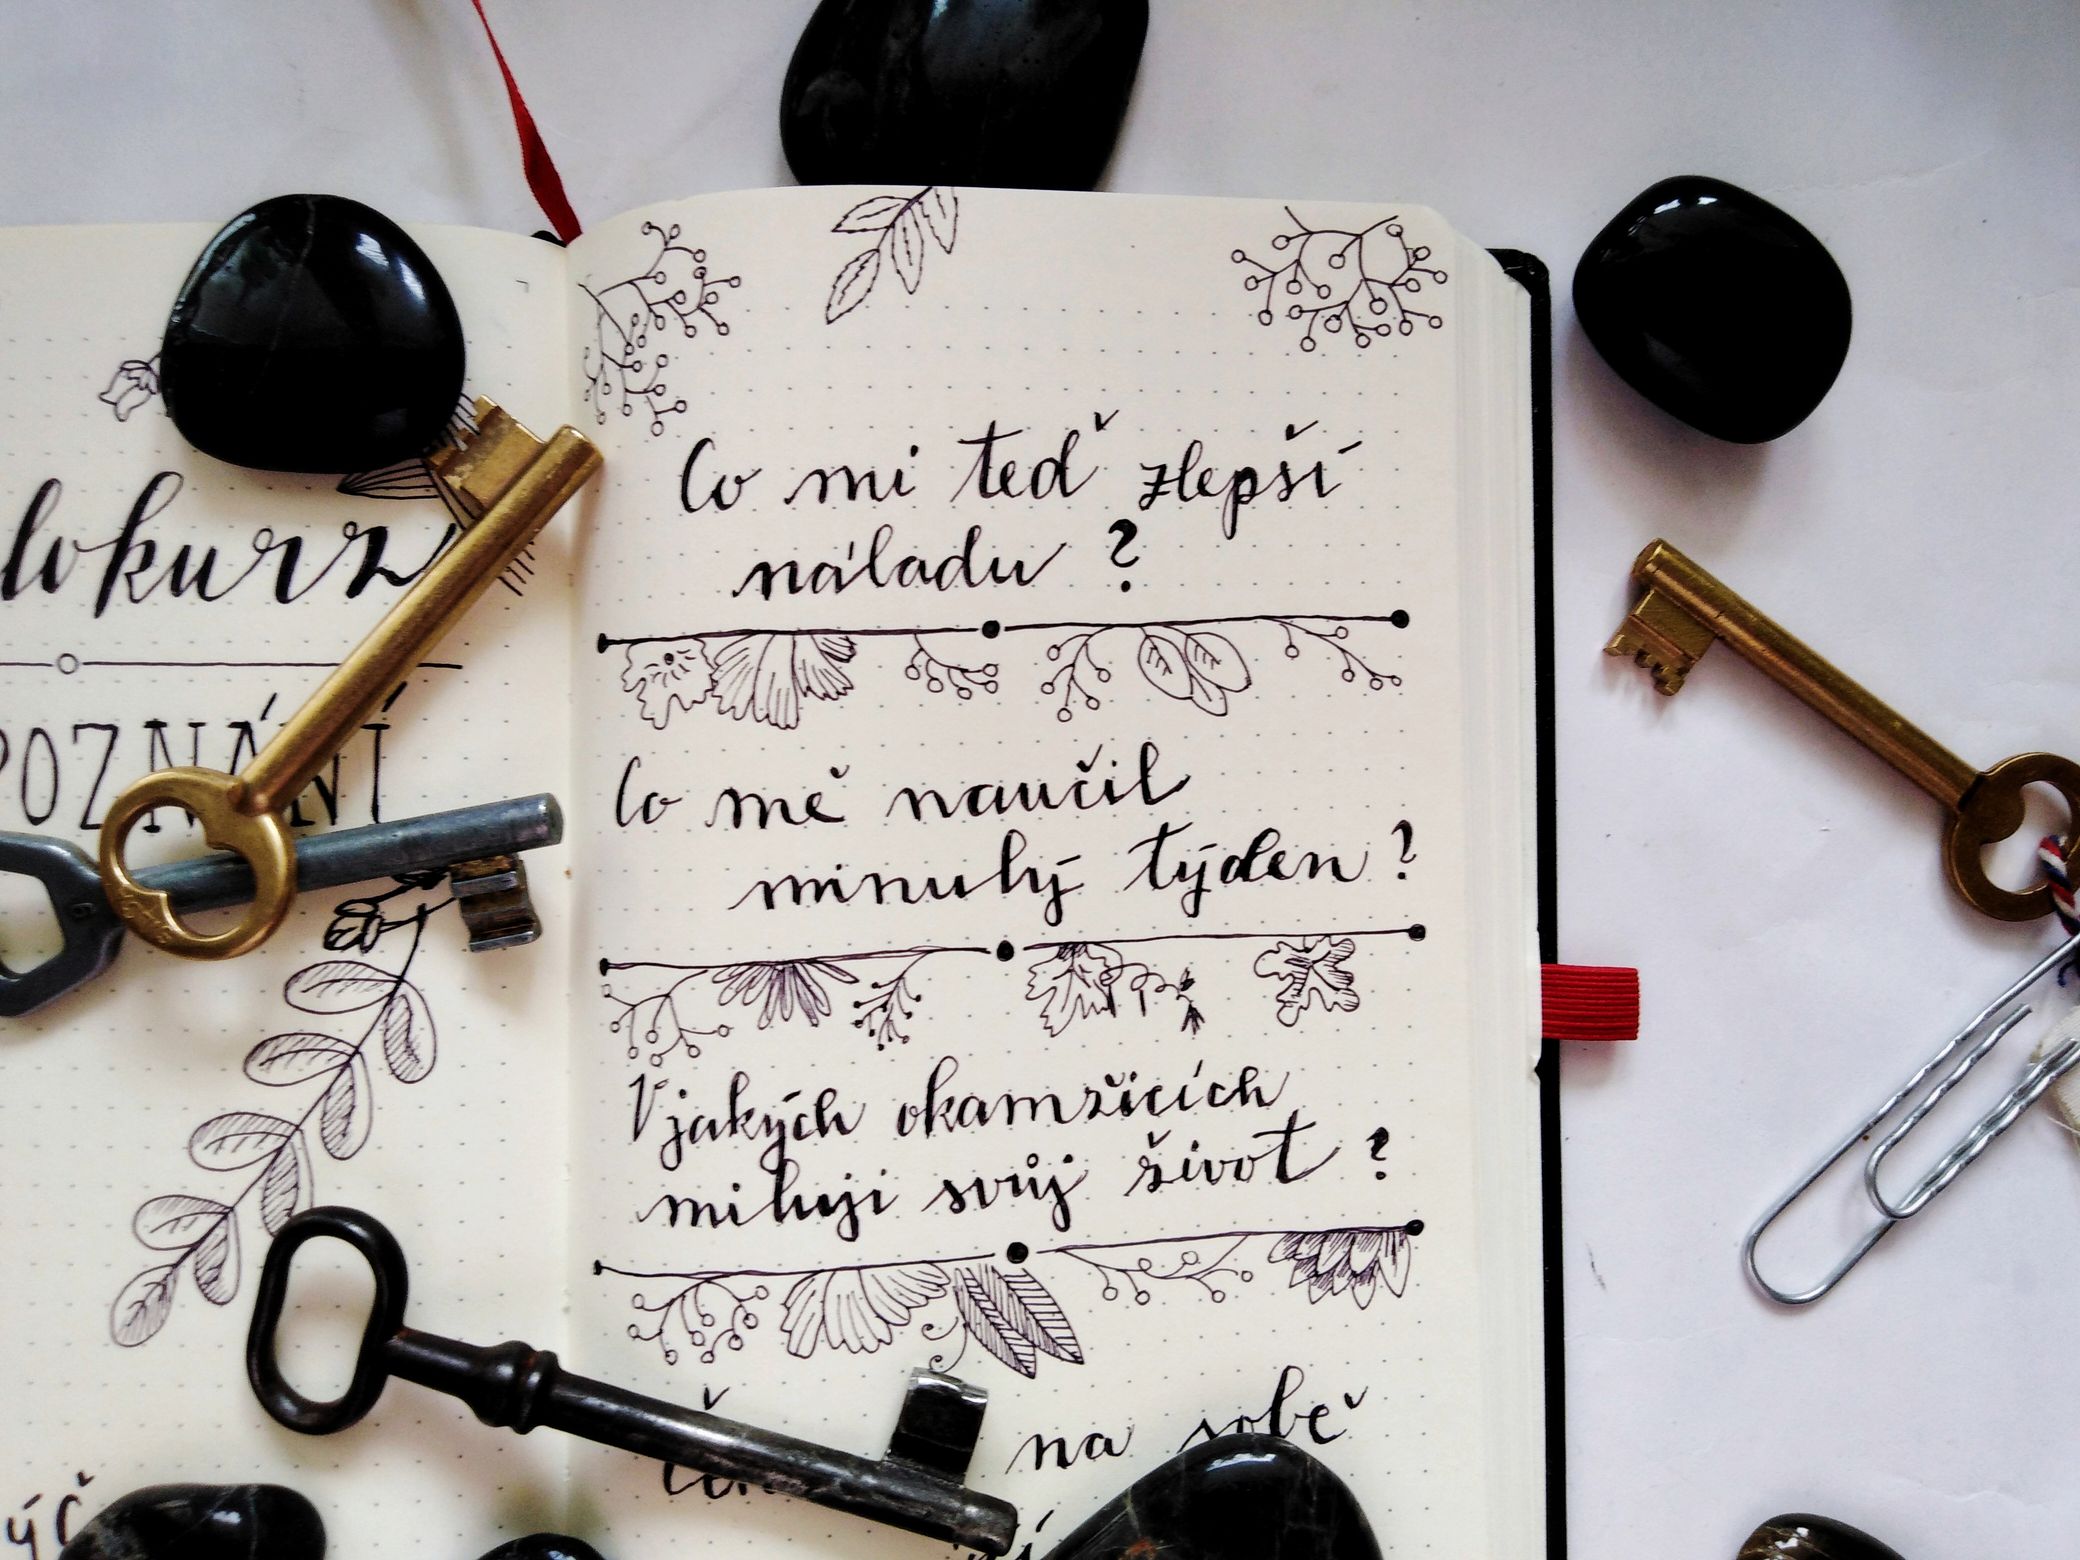 Co mi teď zlepší
náladu ?
Co mě naučil
minulý týden ?
V jakých okamžicích
miluji svůj život ?
na sobě